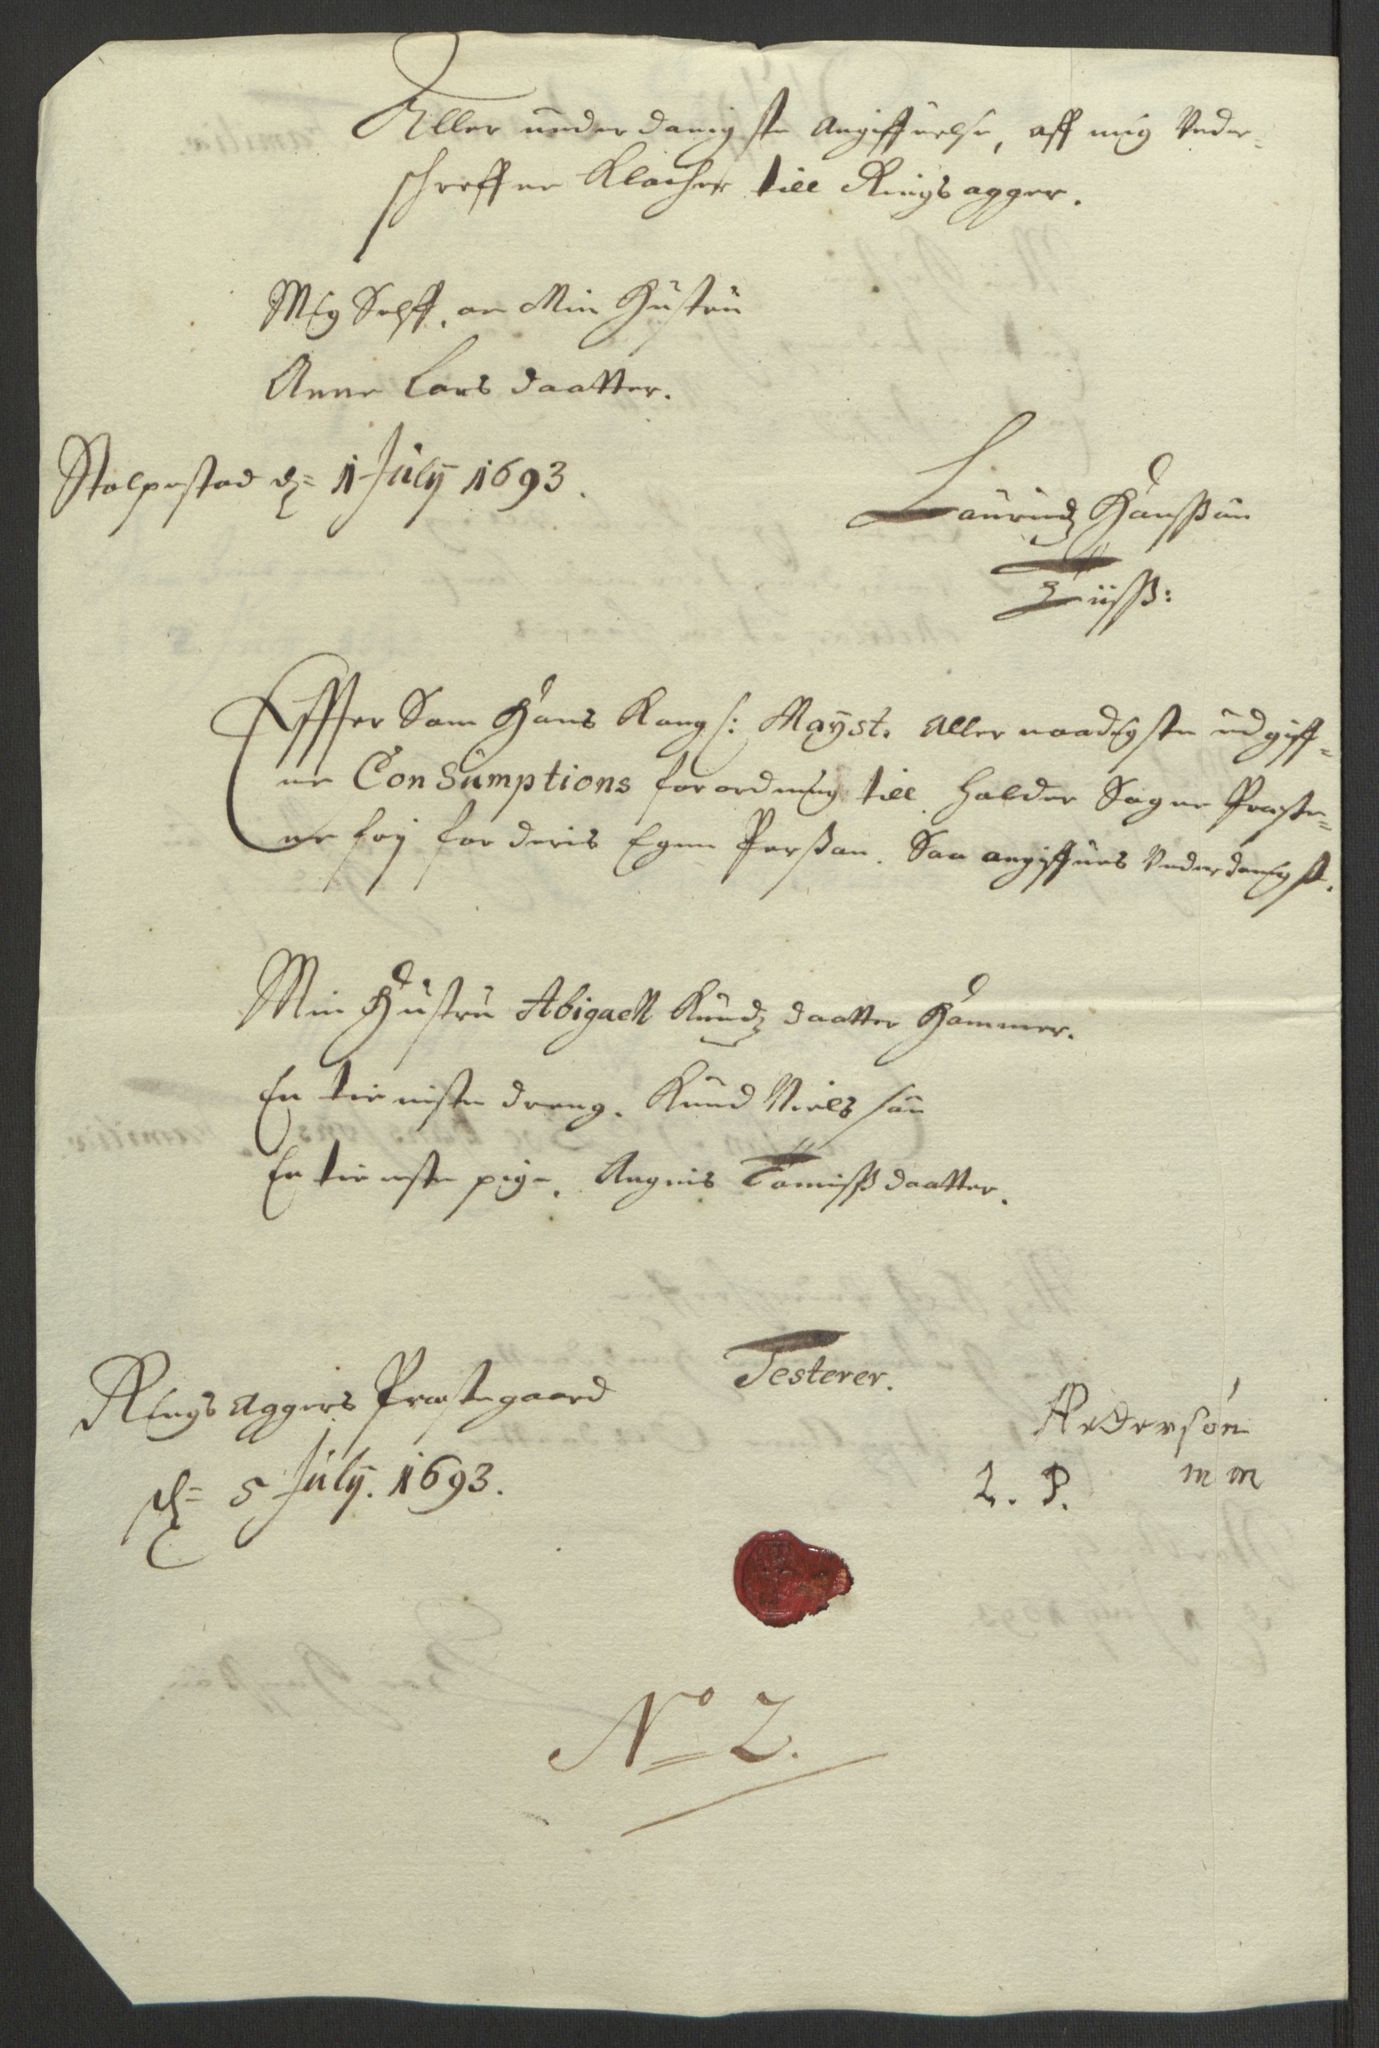 Aller underdanigste Angiffuelse, aff mig Under=
schreffne Klocher till Ringsagger.
Mig Selff, oc Min Hustru
Anne Lars daatter.
Stolpestad d= 1 July 1693.
Lauridz Hanssøn
Effter Som Hans Kong l: Mayst. Aller naadigste udgiff=
ne Consumptions forordning till holder Sogne Præste=
ne frj for deris Egen Persson. Saa angiffues Underdanigst.
Min Hustru Abigaell Knudz daatter Hammer.
En tieniste dreng. Knud Niels søn
En tieneste pige. Angnis Tomiss daatter.
Testerer.
Rings Aggers Præstegaard
d= 5 July. 1693.
Pedersøn
L. P. m m
No 2.